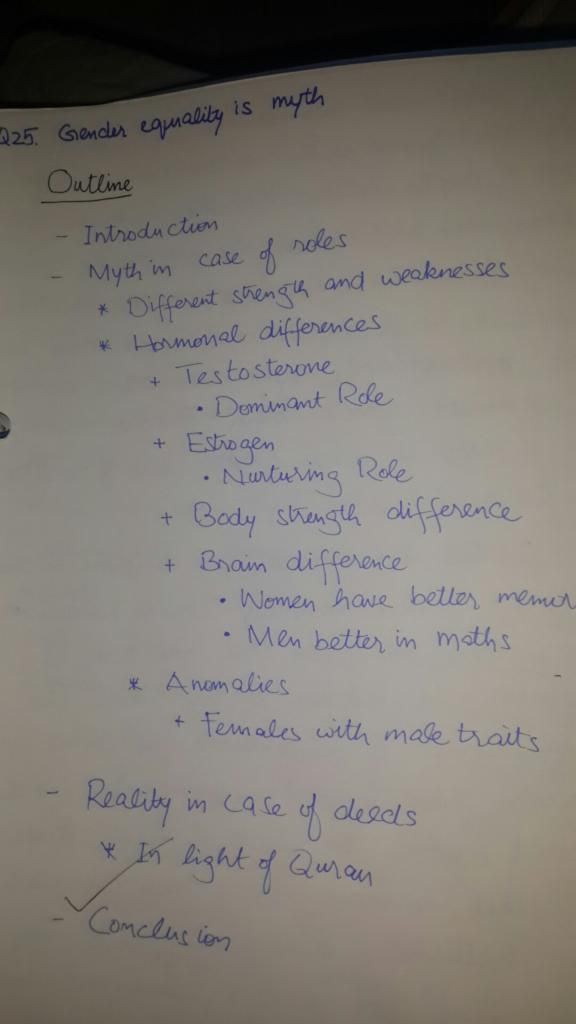 Q25. Gender equality is myth
Outline
- Introduction
- Myth in case of roles
* Different strength and weaknesses
* Hormonal differences
+ Testosterone
• Dominant Role
+ Estrogen
• Nurturing Role
+ Body strength difference
+ Brain difference
• Women have better memor
• Men better in maths
* Anomalies
+ Females with male traits
- Reality in case of deeds
* In light of Quran
- Conclusion